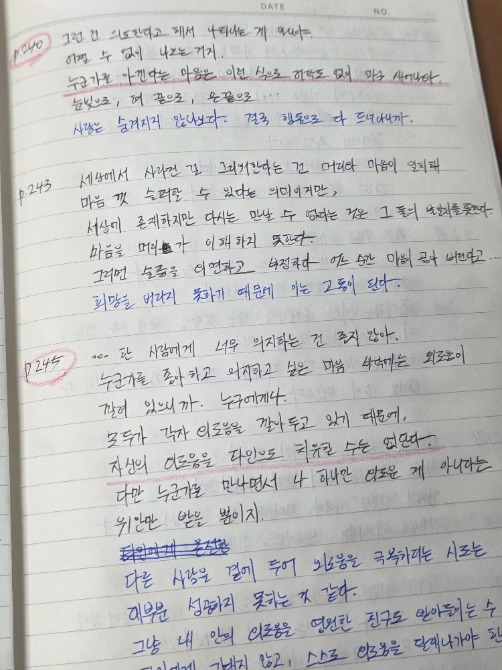 DATE NO.
p.240 그런 건 의도한다고 해서 나타나는 게 아니야.
어쩔 수 없이 나오는 거지.
누군가를 아낀다는 마음은 이런 식으로 허락도 없이 마구 새어나간다.
눈빛으로, 혀 끝으로, 손끝으로…
사랑은 숨겨지지 않나보다. 결국 행동으로 다 드러나니까.
p.243 세상에서 사라진 걸 그리워한다는 건 머리와 마음이 일치해
마음 껏 슬퍼할 수 있다는 의미이지만,
세상에 존재하지만 다시는 만날 수 없다는 것은 그 둘의
마음을 머리가 이해하지 못한다.
그러면 슬픔을 외면하고 어느 순간 마음이 곪아 버린다고…
희망을 버리지 못하기 때문에 이는 고통이 된다.
p.245 … 한 사람에게 너무 의지하는 건 좋지 않아.
누군가를 좋아하고 의지하고 싶은 마음 에는 외로움이
깔려 있으니까. 누구에게나.
모두가 각자 외로움을 깔아두고 있기 때문에,
자신의 외로움을 타인으로 치유할 수는 없단다.
다만 누군가를 만나면서 나 하나만 외로운 게 아니라는
위안만 받을 뿐이지.
다른 사람을 곁에 두어 외로움을 극복하려는 시도는
대부분 성공하지 못하는 것 같다.
그냥 내 안의 외로움을 영원한 친구로 받아들이는 수
않고, 스스로 외로움을 달래나가야 한